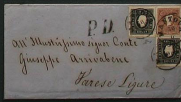 P.D.
All' Illustrissimo Signor Conte
Giuseppe Arrivabene
Varese Ligure